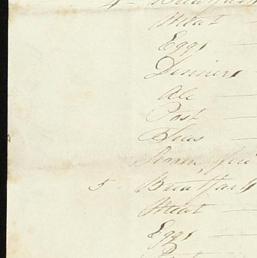 4 - Breakfast
Meat
Eggs
Dinners
Ale
Post
Room fire
5 - Breakfasts
Meat
Eggs